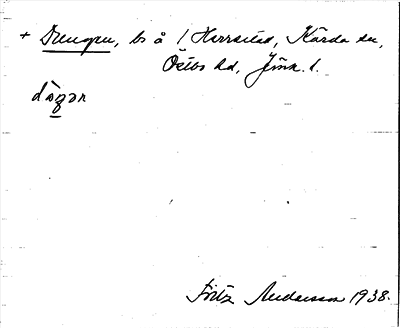 + Drengen, bs å 1 Horrsted, Kärda sn,
Östbo hd, Jönk. l.
Fritz Andersson 1938.